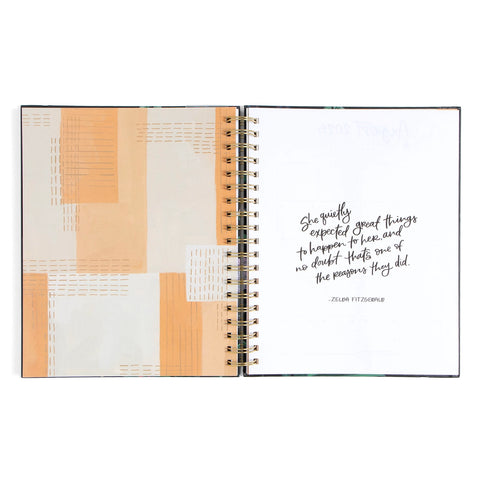 She quietly
expected great things
to happen to her, and
no doubt that's one of
the reasons they did.
-ZELDA FITZGERALD